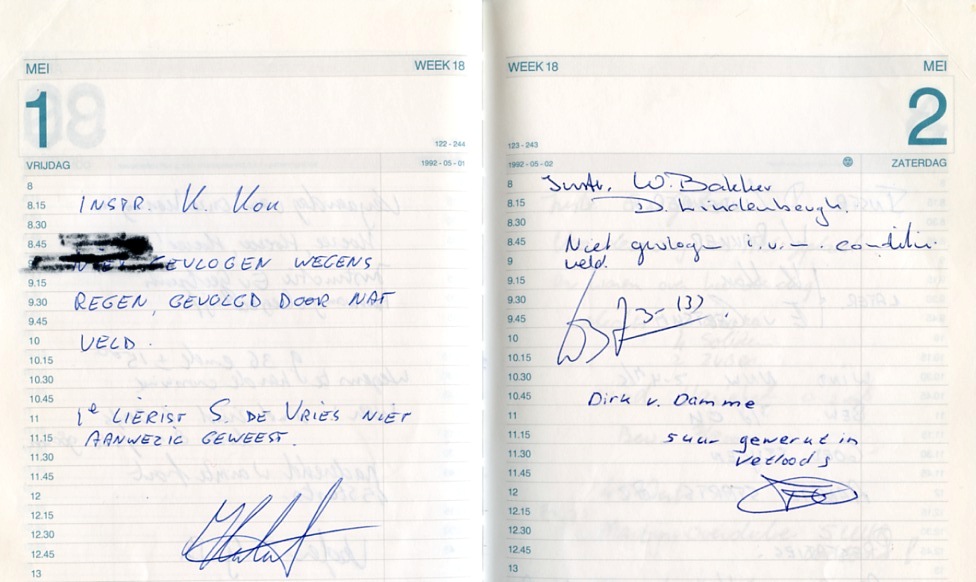 MEI WEEK 18
1
122 - 244
VRIJDAG 1992 - 05 - 01
8
8.15 INSTR. K. KOK
8.30
8.45
9 NIET GEVLOGEN WEGENS
9.15
9.30 REGEN, GEVOLGD DOOR NAT
9.45
10 VELD.
10.15
10.30
10.45
11 1e LIERIST S. DE VRIES NIET
11.15 AANWEZIG GEWEEST.
11.30
11.45
12
12.15
12.30
12.45
13
WEEK 18 MEI
2
123 - 243
1992 - 05 - 02 ZATERDAG
8 Instr. W. Bakker
8.15 D. Lindenbergh.
8.30
8.45 Niet gevlogen i.v.m. conditie
9 veld.
9.15
9.30
9.45
10
10.15
10.30
10.45 Dirk v. Damme
11
11.15 5 uur gewerkt in
11.30 veloods
11.45
12
12.15
12.30
12.45
13